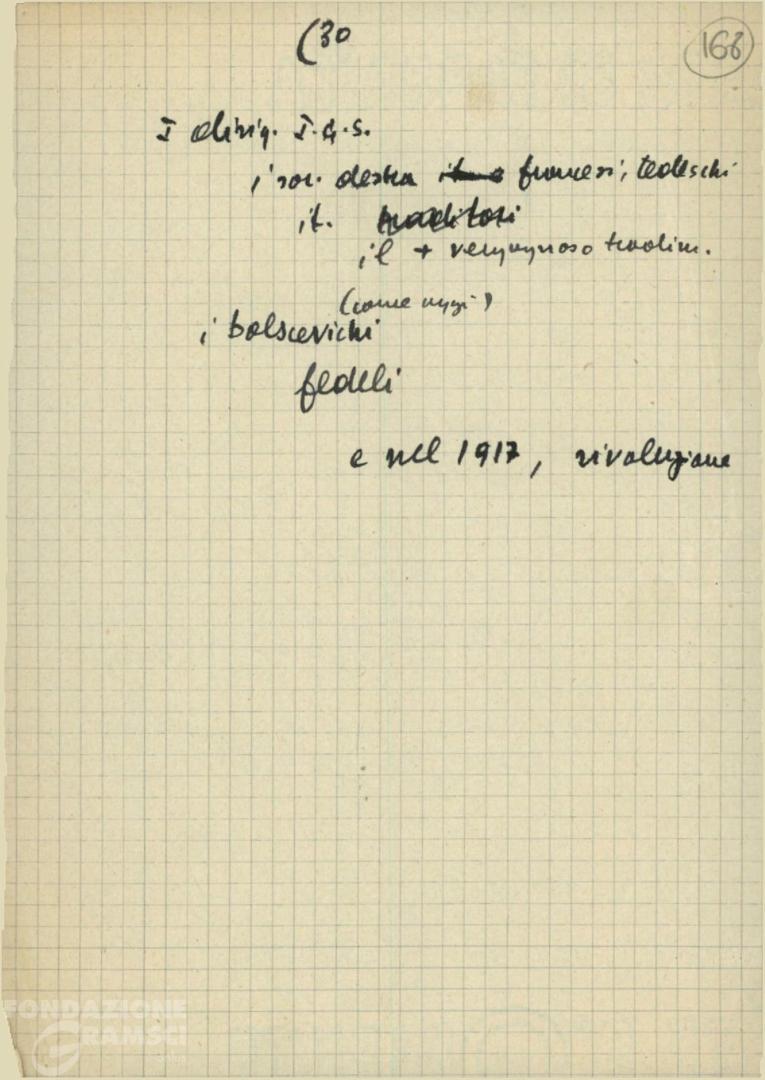 (30
168
I dirig. I.a.s.
i soc. destra francesi, tedeschi
it. traditori
il + vergognoso tradim.
(come oggi)
i bolscevichi
fedeli
e nel 1917, rivoluzione
FONDAZIONE
GRAMSCI